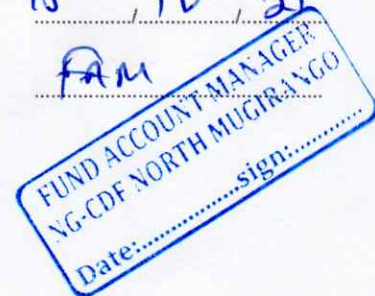 FAM
FUND ACCOUNT MANAGER
NG-CDF NORTH MUGIRANGO
Date:....................sign:............